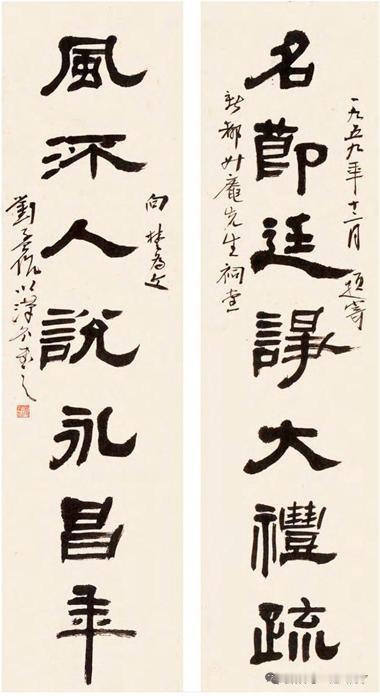 一九五九年十二月題寄
新都升庵先生祠堂
名節廷諍大禮疏
風流人說永昌年
向楚為文
劉孟伉以漢分書之